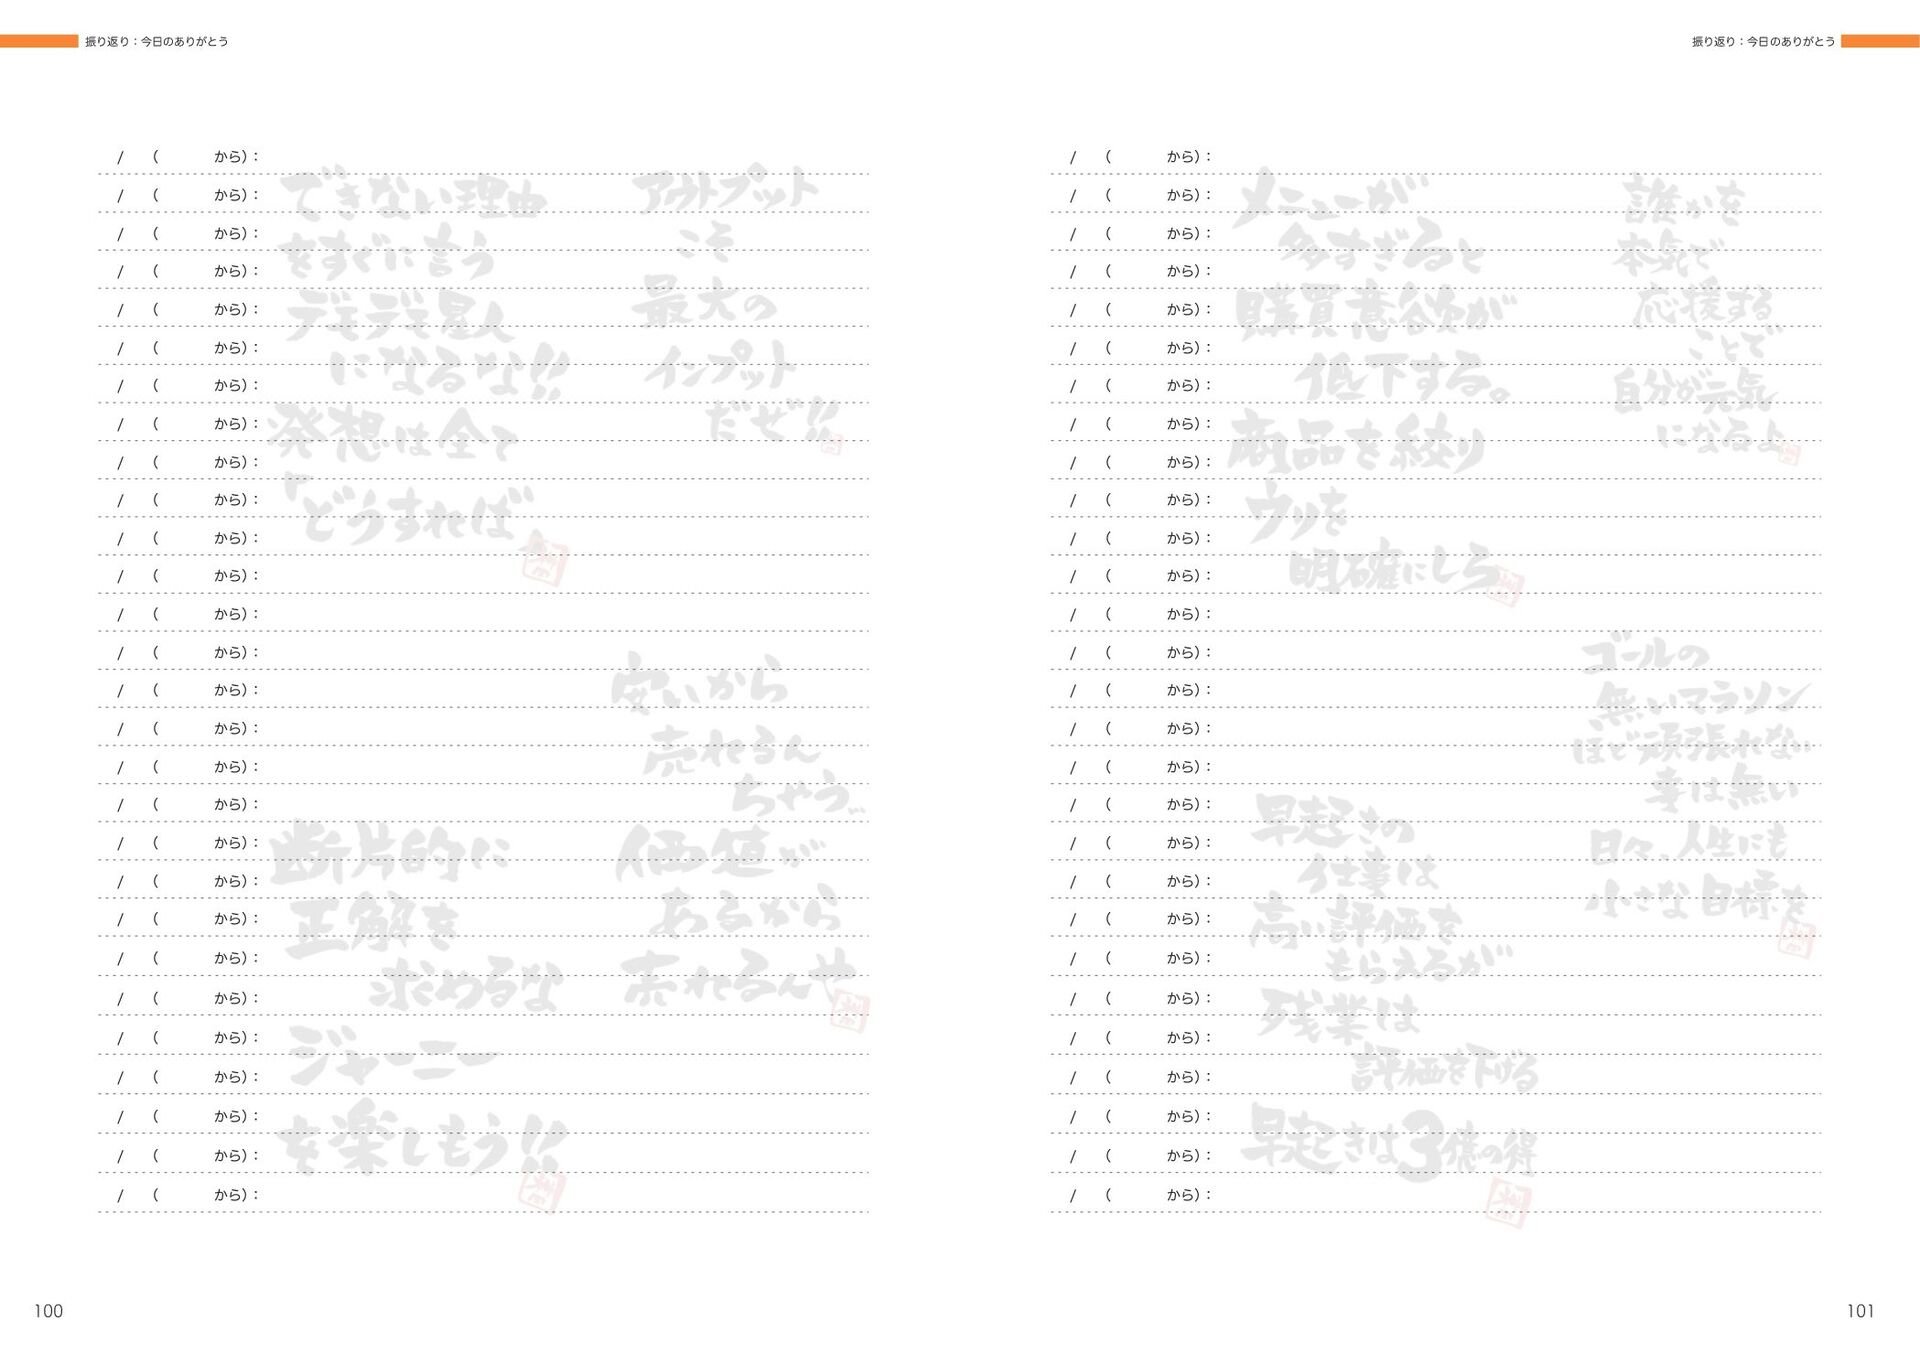 振り返り：今日のありがとう
/ （ から）：
/ （ から）：
/ （ から）：
/ （ から）：
/ （ から）：
/ （ から）：
/ （ から）：
/ （ から）：
/ （ から）：
/ （ から）：
/ （ から）：
/ （ から）：
/ （ から）：
/ （ から）：
/ （ から）：
/ （ から）：
/ （ から）：
/ （ から）：
/ （ から）：
/ （ から）：
/ （ から）：
/ （ から）：
/ （ から）：
/ （ から）：
/ （ から）：
/ （ から）：
/ （ から）：
/ （ から）：
できない理由
をすぐに言う
デモデモ星人
になるな!!
発想は全て
『どうすれば』
アウトプット
こそ
最大の
インプット
だぜ!!
安いから
売れるん
ちゃう…
価値が
あるから
売れるんや
断片的に
正解を
求めるな
ジャーニー
を楽しもう!!
100
振り返り：今日のありがとう
/ （ から）：
/ （ から）：
/ （ から）：
/ （ から）：
/ （ から）：
/ （ から）：
/ （ から）：
/ （ から）：
/ （ から）：
/ （ から）：
/ （ から）：
/ （ から）：
/ （ から）：
/ （ から）：
/ （ から）：
/ （ から）：
/ （ から）：
/ （ から）：
/ （ から）：
/ （ から）：
/ （ から）：
/ （ から）：
/ （ から）：
/ （ から）：
/ （ から）：
/ （ から）：
/ （ から）：
/ （ から）：
メニューが
多すぎると
購買意欲が
低下する。
商品を絞り
ウリを
明確にしろ
誰かを
本気で
応援する
ことで
自分が元気
になるよ
ゴールの
無いマラソン
ほど頑張れない
事は無い
日々、人生にも
小さな目標を
早起きの
仕事は
高い評価を
もらえるが
残業は
評価を下げる
早起きは3億の得
101